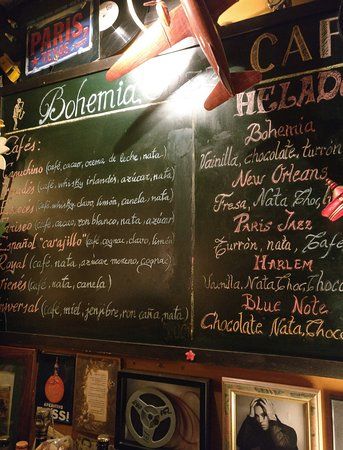 PARIS
Bohemia
Cafés:
(café, cacao, crema de leche, nata)
(café, whisky irlandés, azúcar, nata)
(café, whisky, clavo, limón, canela, nata)
(café, cacao, ron blanco, nata, azúcar)
Español "carajillo" (café, cognac, clavo, limón)
Royal (café, nata, azúcar moreno, cognac)
(café, nata, canela)
(café, miel, jenjibre, ron caña, nata)
CAF
HELADO
Bohemia
Vainilla, chocolate, turrón
New Orleans
Fresa, Nata, Choc,
Paris Jazz
Turrón, nata, Café
Harlem
Vanilla, Nata, Choc, Choco
Blue Note
Chocolate Nata, Choco